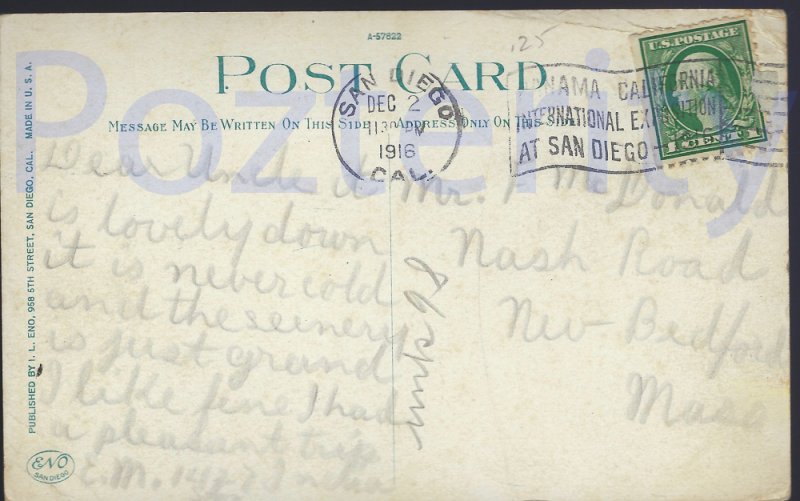 A-57822
.25
POST CARD
MESSAGE MAY BE WRITTEN ON THIS SIDE
ADDRESS ONLY ON THIS SIDE
SAN DIEGO
DEC 2
1916
CAL.
PANAMA CALIFORNIA
INTERNATIONAL EXPOSITION
AT SAN DIEGO
U.S. POSTAGE
1 CENT
Pozterity
MADE IN U. S. A.
PUBLISHED BY I. L. ENO, 958 5TH STREET, SAN DIEGO, CAL.
ENO
SAN DIEGO
Dear Uncle it
is lovely down
it is never cold
and the scenery
is just grand
I like fine I had
a pleasant trip
E. M.
Mr. McDonald
Nash Road
New Bedford
Mass